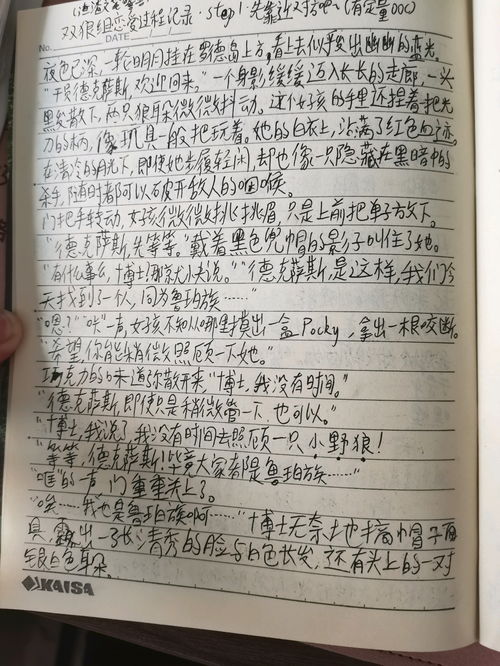 (渣渣文笔警告)
双狼组恋爱过程记录·step1:先靠近对方吧(有定量OOC)
No. DATE
夜色已深,一轮明月挂在罗德岛上方,看上去似乎发出幽幽的蓝光。
"干员德克萨斯,欢迎回来。"一个身影缓缓迈入长长的走廊,一头
黑发散下,两只狼耳微微抖动。这个女孩的手里还捏着把光
刀的柄,像玩具一般把玩着。她的白衣上,沾满了红色的迹。
在清冷的月光下,即使她步履轻闲,却也像一只隐藏在黑暗中的
杀手,随时都可以破开敌人的咽喉。
门把手转动,女孩微微挑挑眉,只是上前把单子放下。
"德克萨斯,先等等。"戴着黑色兜帽的影子叫住了她。
"有什么事么,博士?那京大小去说。""德克萨斯,是这样,我们今
天找到了一个人,同为鲁珀族……"
"嗯?""咔"一声,女孩不知从哪里摸出一盒Pocky,拿出一根咬断。
"希望你能稍微照顾一下她。"
巧克力的味道弥散开来"博士,我没有时间。"
"德克萨斯,即使只是稍微管一下也可以。"
"博士,我说了,我没有时间去照顾一只小野狼!"
"等等,德克萨斯!毕竟大家都是鲁珀族……"
"哐"的一声,门重重关上了。
"唉……我也是鲁珀族啊……"博士无奈地摘帽子面
具,露出一张清秀的脸与白色长发,还有头上的一对
银白色耳朵。
KAISA